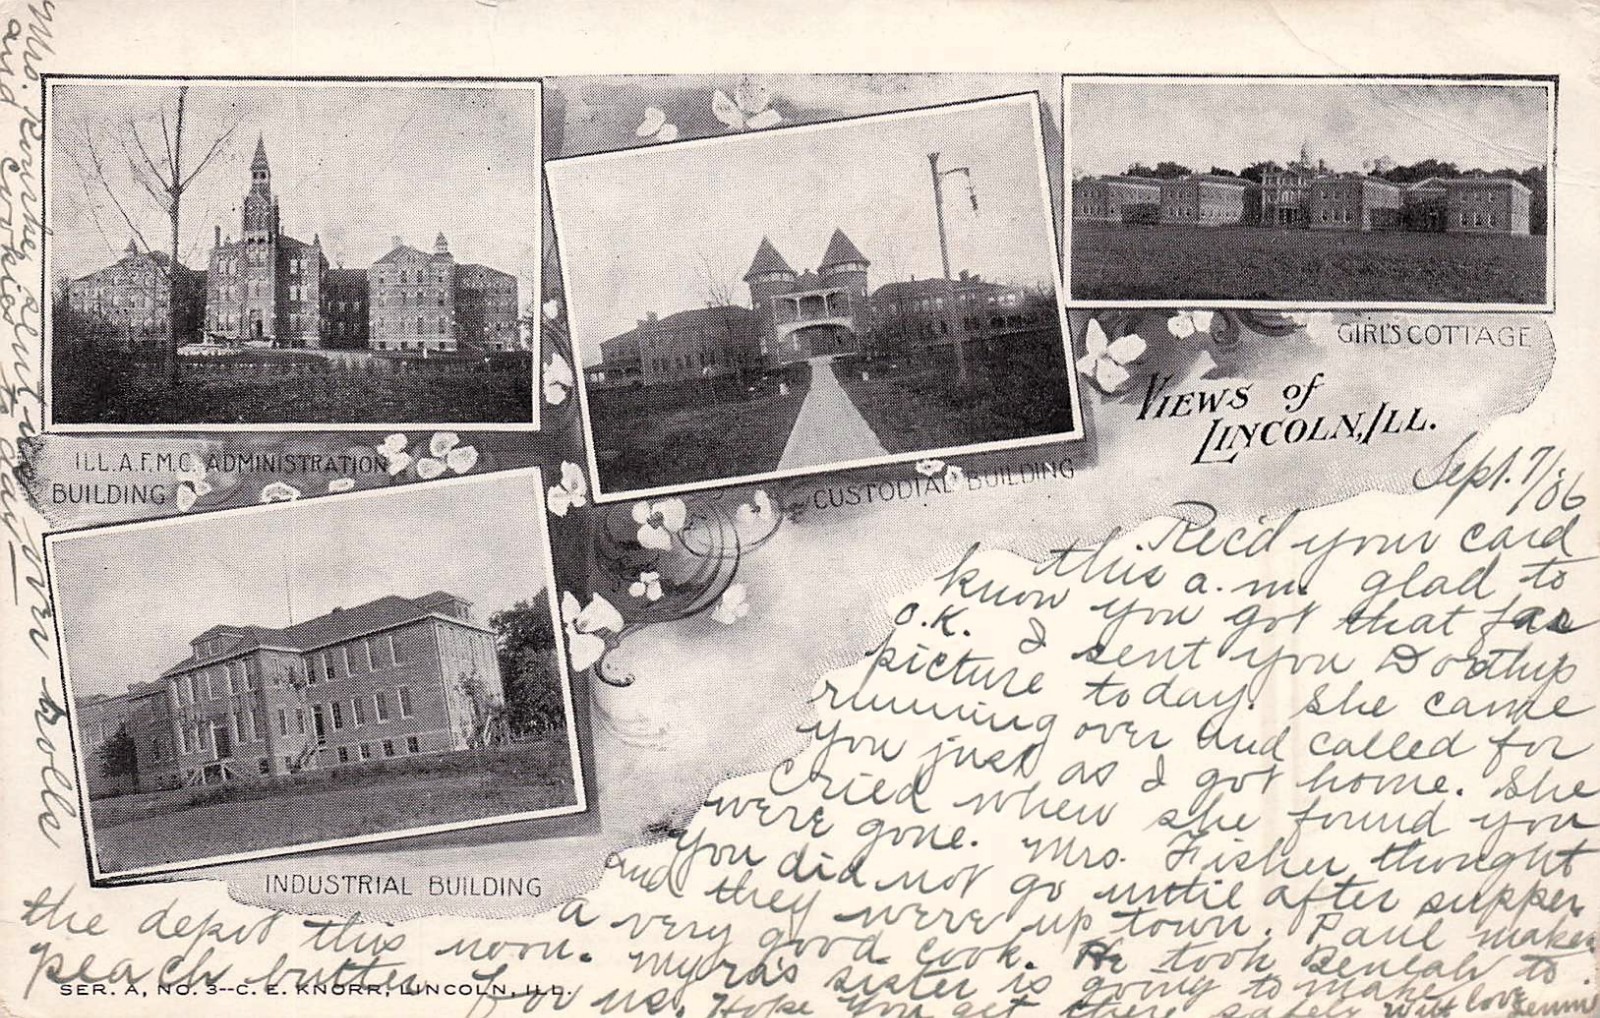 ILL. A.F.M.C. ADMINISTRATION
BUILDING
CUSTODIAL BUILDING
GIRL'S COTTAGE
VIEWS of
LINCOLN, ILL.
INDUSTRIAL BUILDING
Sept. 7/06
Rec'd your card
this a.m. glad to
know you got that far
O.K. I sent you Dorothys
picture today. She came
running over and called for
you just as I got home. She
cried when she found you
were gone. Mrs. Fisher thought
you did not go until after supper
and they were up town. Paul makes
a very good cook. He took Beulah to
the depot this noon. Myra's sister is going to make
peach butter for us. Hope you get there safely with love
SER. A, NO. 3--C. E. KNORR, LINCOLN, ILL.
Mrs. sent us over rolls
and cookies today